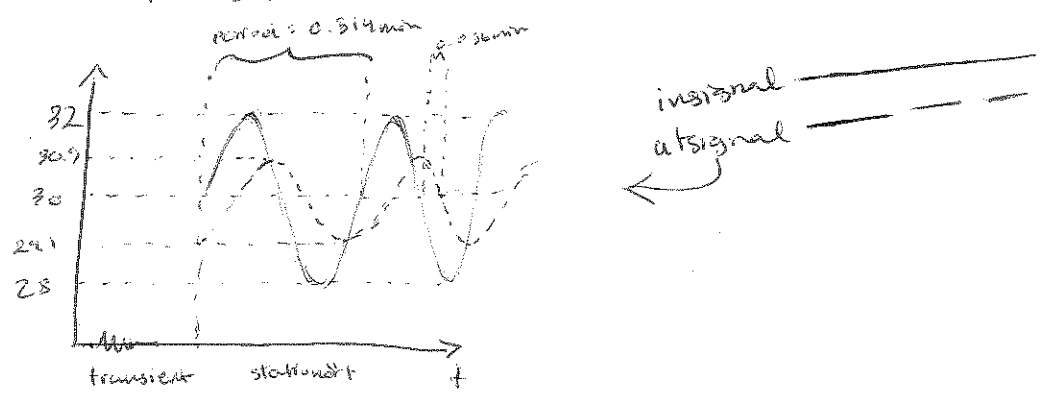 period = 0.314 min
32
30.9
30
29.1
28
transient stationärt t
insignal
utsignal